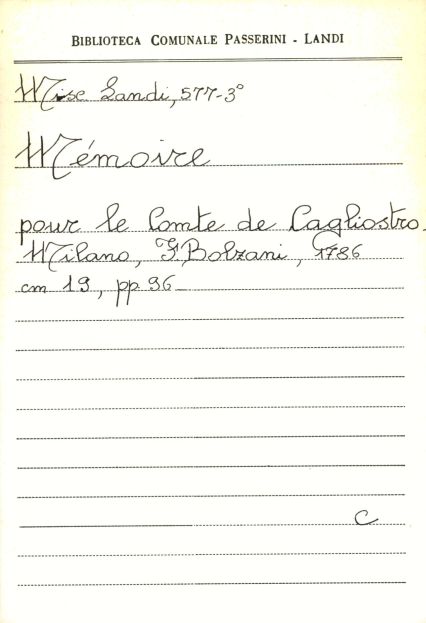 BIBLIOTECA COMUNALE PASSERINI - LANDI
Misc Landi, 577-3°
Mémoire
pour le Comte de Cagliostro.
Milano, G. Bolzani, 1786
cm 19, pp 96
C